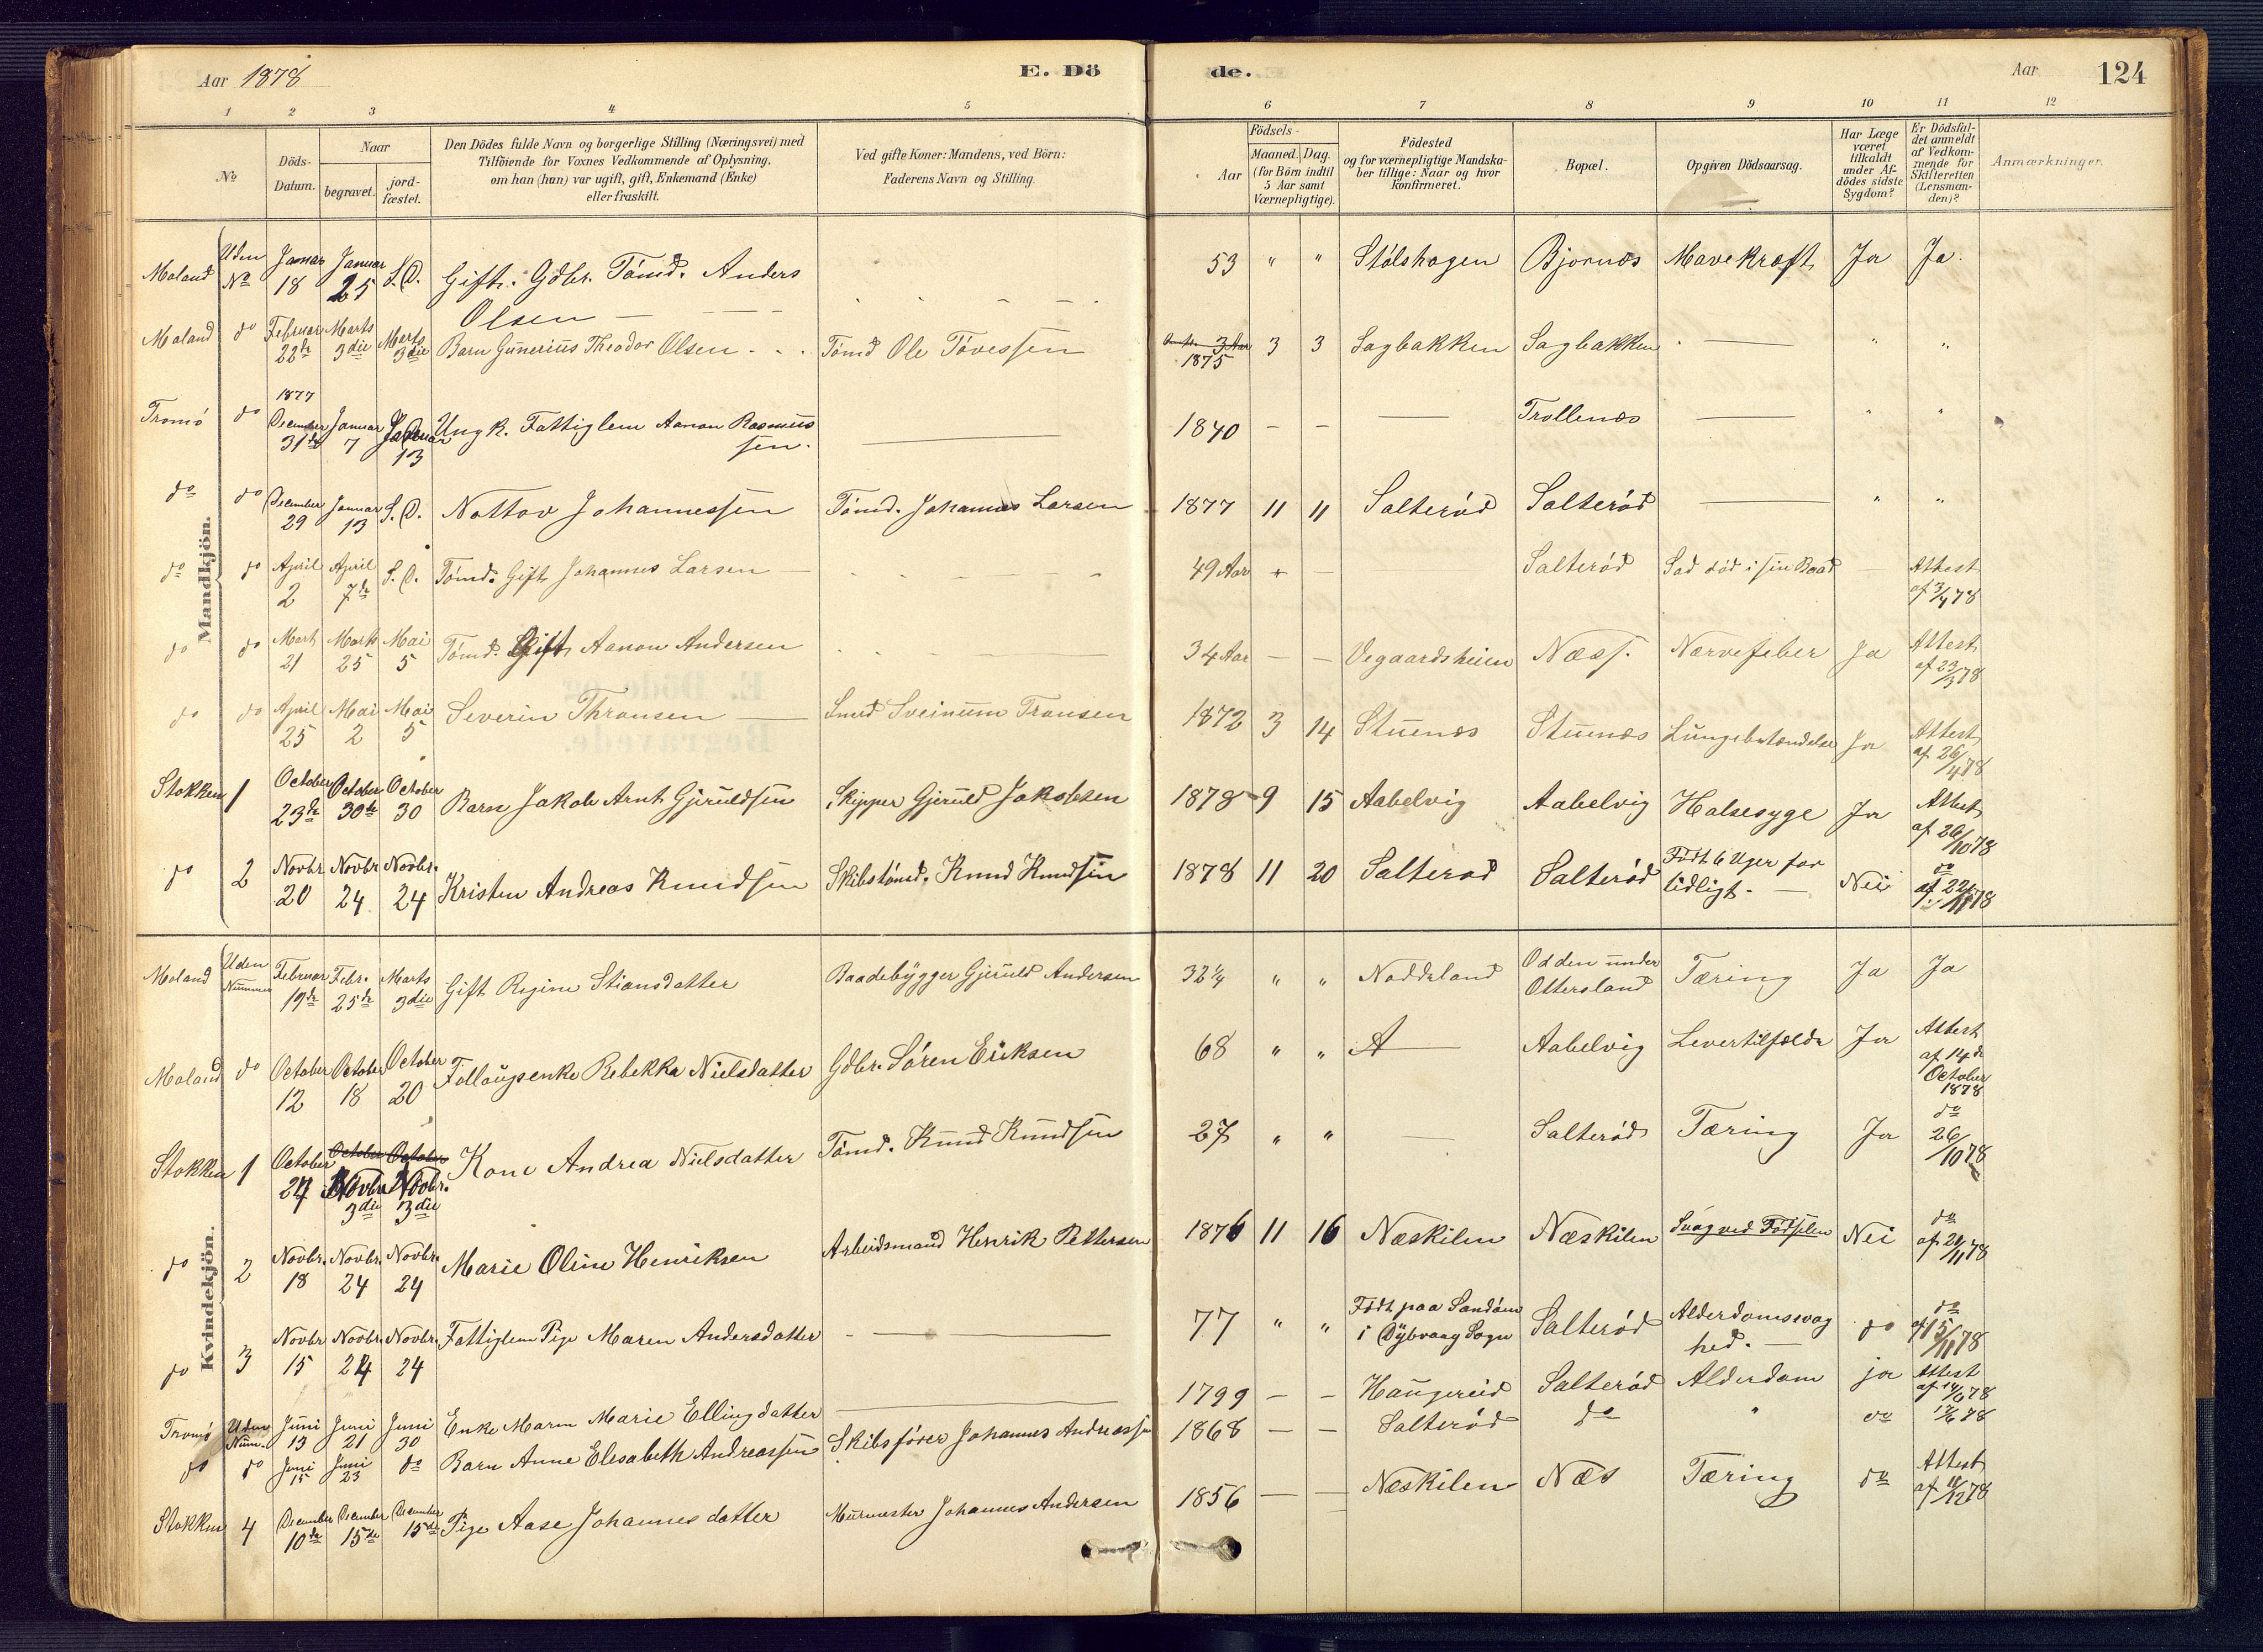 Aar 1878 E. Dö de. Aar 124
1 2 3 4 5 6 7 8 9 10 11 12
No
Döds-Datum.
Naar
begravet.
jord-fæstet.
Den Dödes fulde Navn og borgerlige Stilling (Næringsvei) med
Tilföiende for Voxnes Vedkommende af Oplysning,
om han (hun) var ugift, gift, Enkemand (Enke)
eller fraskilt.
Ved gifte Koner: Mandens, ved Börn:
Faderens Navn og Stilling.
Födsels-
Aar
Maaned. Dag.
(for Börn indtil
5 Aar samt
Værnepligtige).
Födested
og for værnepligtige Mandska-
ber tillige: Naar og hvor
konfirmeret.
Bopæl.
Opgiven Dödsaarsag.
Har Læge
været
tilkaldt
under Af-
dödes sidste
Sygdom?
Er Dödsfal-
det anmeldt
af Vedkom-
mende for
Skifteretten
(Lensman-
den)?
Anmærkninger.
Mandkjön.
Moland Uden No Januar 18 Januar 25 S.D. Gift. Gdbr. Tömd. Anders Olsen 53 " " Stölshagen Bjornæs Mavekræft Ja Ja.
Moland do Februar 22de Marts 3die Marts 3die Barn Gunerius Theodor Olsen Tömd Ole Tövessen 1875 3 3 Sagbakken Sagbakken — " "
Tromö do 1877 December 31te Januar 7 Januar 13 Ungk. Fattiglem Aanon Rasmussen. — 1840 - - — Trollenæs — " "
do do December 29 Januar 13 S.D. Nottov Johannessen Tömd. Johannes Larsen 1877 11 11 Salteröd Salteröd — " "
do do April 2 April 7de S.D. Tömd. Gift Johannes Larsen — 49 Aar - - Salteröd Sad död i sin Baad — Attest af 3/4 78
do do Mart 21 Marts 25 Mai 5 Tömd. Gift Aanon Andersen — 34 Aar - - Vegaardsheien Næss. Nervefeber Ja Attest af 23/3 78
do do April 25 Mai 2 Mai 5 Severin Thronsen — Smed Sveinum Tronsen 1872 3 14 Stuenæs Stuenæs Lungebetændelse Ja Attest af 26/4 78
Stokken 1 October 23de October 30te October 30 Barn Jakob Arnt Gjeruldsen Skipper Gjeruld Jakobsen 1878 9 15 Aabelvig Aabelvig Halsesyge Ja Attest af 26/10 78
do 2 Novbr 20 Novbr 24 Novbr. 24 Kristen Andreas Knudsen Skibstömd. Knud Knudsen 1878 11 20 Salterod Salteröd Födt 6 Uger for tidligt. — Nei do af 22/11 78
Kvindekjön.
Moland Uden Nummer Februar 19de Febr. 25de Marts 3die Gift Regine Stiansdatter Baadebygger Gjeruld Andersen 32 1/4 " " Noddeland Odden under Ottersland Tæring Ja Ja
Moland do October 12 October 18 October 20 Follaugsenke Rebekka Nielsdatter Gdbr. Sören Eriksen 68 " " A — Aabelvig Levertilfælde Ja Attest af 14de October 1878
Stokken 1 October 27 October October Novbr 3die Novbr. 3die Kone Andrea Nielsdatter Tömd. Knud Knudsen 27 " " — Salteröd Tæring Ja do 26/10 78
do 2 Novbr. 18 Novbr. 24 Novbr. 24 Marie Oline Henriksen Arbeidsmand Henrik Pettersen 1876 11 16 Næskilen Næskilen Svag ved Födselen Nei do af 21/11 78
do 3 Novbr 15 Novbr. 24 Novbr. 24 Fattiglem Pige Maren Andersdatter — 77 " " Födt paa Sandöen i Dybvaag Sogn Salteröd Alderdomssvaghed. — do do af 15/11 78
Tromö Uden Num. Juni 13 Juni 21 Juni 30 Enke Maren Marie Ellingsdatter — 1799 - - Haugereid Salteröd Alderdom ja Attest af 14/6 78
do do Juni 15 Juni 23 do Barn Anne Elesabeth Andreassen Skibsförer Johannes Andreassen 1868 - - Salteröd do " do 78
Stokken 4 December 10de December 15de December 15de Pige Aase Johannesdatter Murmester Johannes Andersen 1856 — — Næskilen Næs Tæring do Attest af 11/12 78